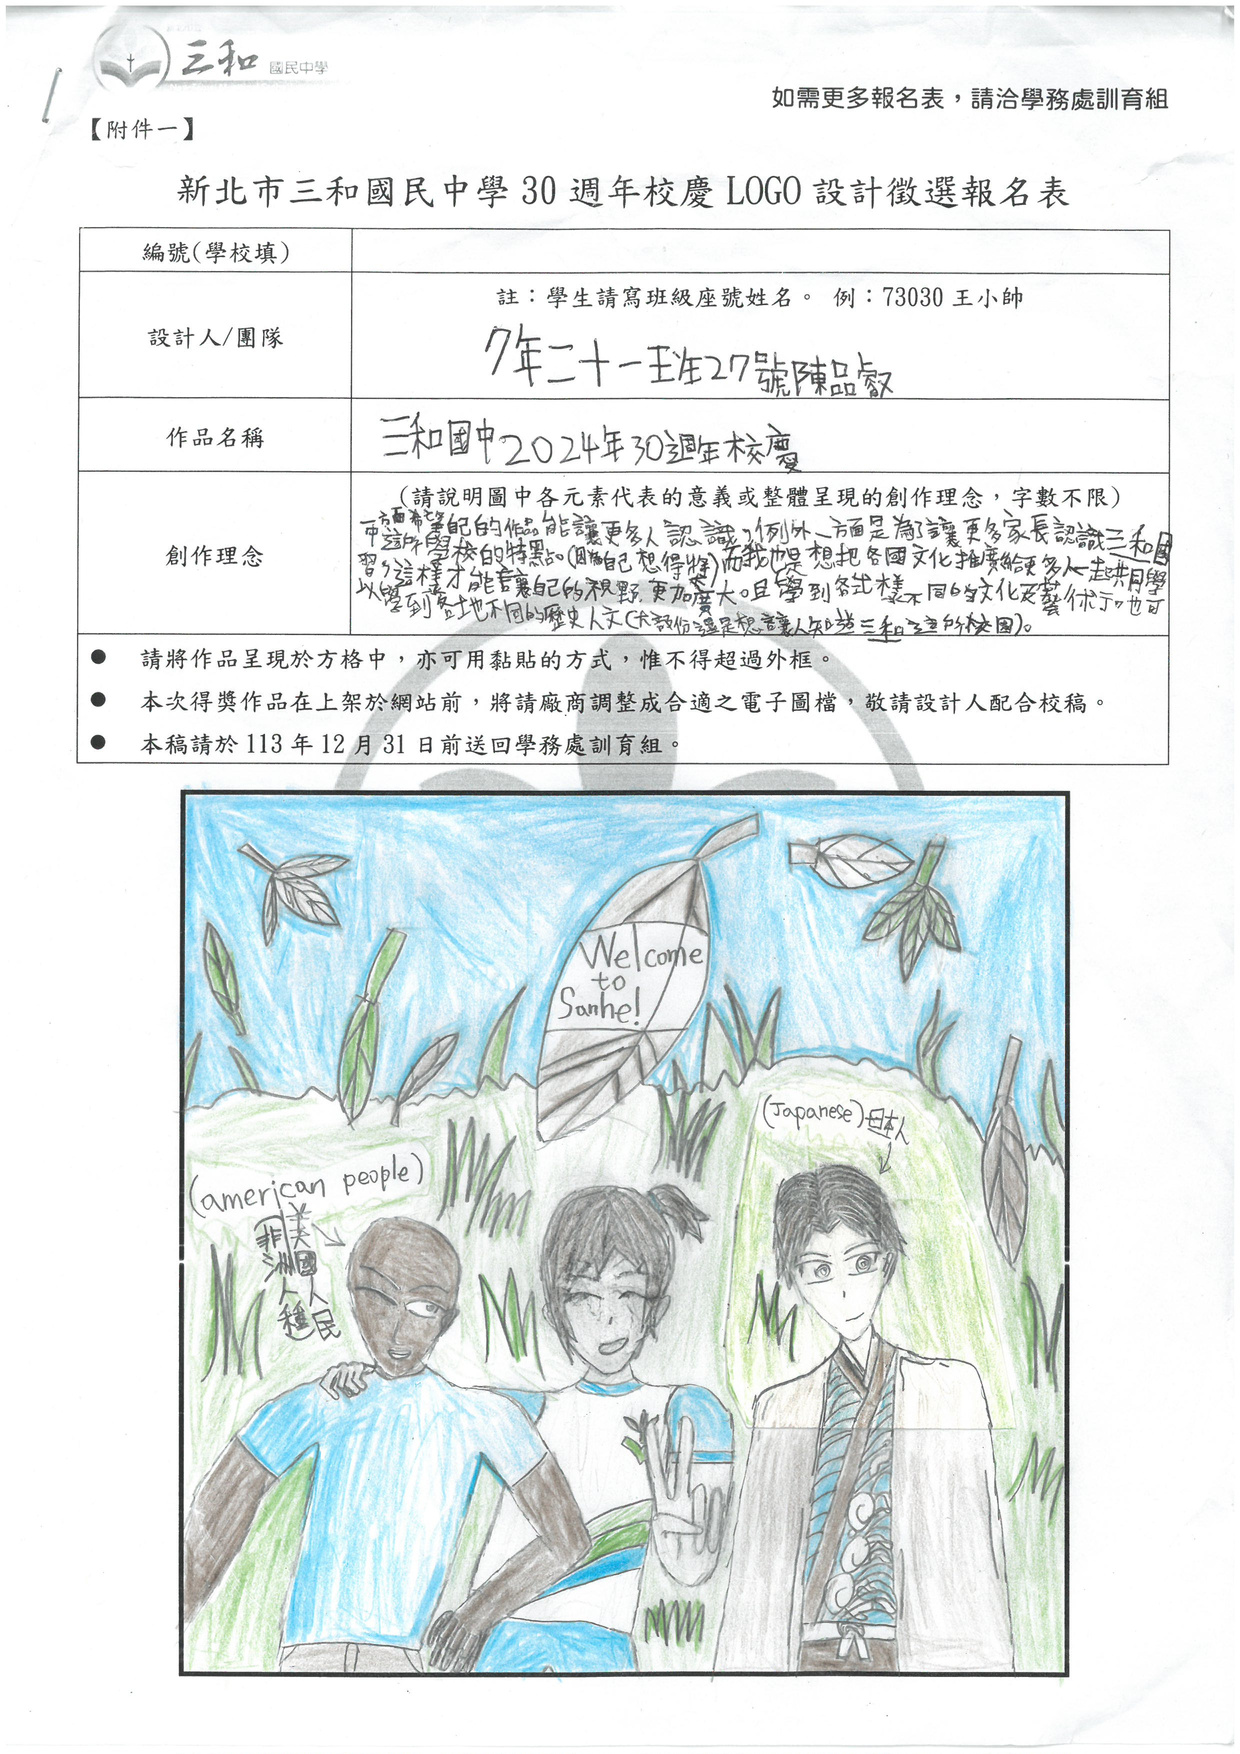 三和 國民中學
如需更多報名表，請洽學務處訓育組
【附件一】
新北市三和國民中學30週年校慶LOGO設計徵選報名表
編號(學校填)
設計人/團隊
註：學生請寫班級座號姓名。 例：73030王小帥
7年二十一班27號陳品叡
作品名稱
三和國中2024年30週年校慶
創作理念
(請說明圖中各元素代表的意義或整體呈現的創作理念，字數不限)
一方面希望自己的作品能讓更多人認識，例外一方面是為了讓更多家長認識三和國
中這所學校的特點。(自己想得獎)而我也是想把各國文化推廣給更多人一起共同學
習，這樣才能讓自己的視野更加廣大。且學到各式樣不同的文化及藝術，也可
以學到各地不同的歷史人文(大部份還是想讓人知道三和這所校園)。
● 請將作品呈現於方格中，亦可用黏貼的方式，惟不得超過外框。
● 本次得獎作品在上架於網站前，將請廠商調整成合適之電子圖檔，敬請設計人配合校稿。
● 本稿請於113年12月31日前送回學務處訓育組。
Welcome
to
Sanhe!
(Japanese)日本人
(american people)
美國人民
非洲人種